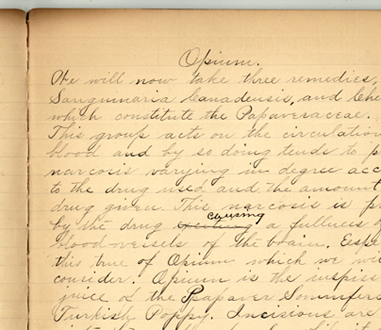 Opium.
We will now take three remedies,
Sanguinaria Canadensis, and Che
which constitute the Papaveraceae.
This group acts on the circulation
blood and by so doing tends to p
narcosis varying in degree acc
to the drug used and the amount
drug given. This narcosis is p
causing
by the drug a fullness
blood vessels of the brain. Espe
this true of Opium which we wi
consider. Opium is the inspiss
juice of the Papaver Somnifer
Turkish Poppy. Incisions are